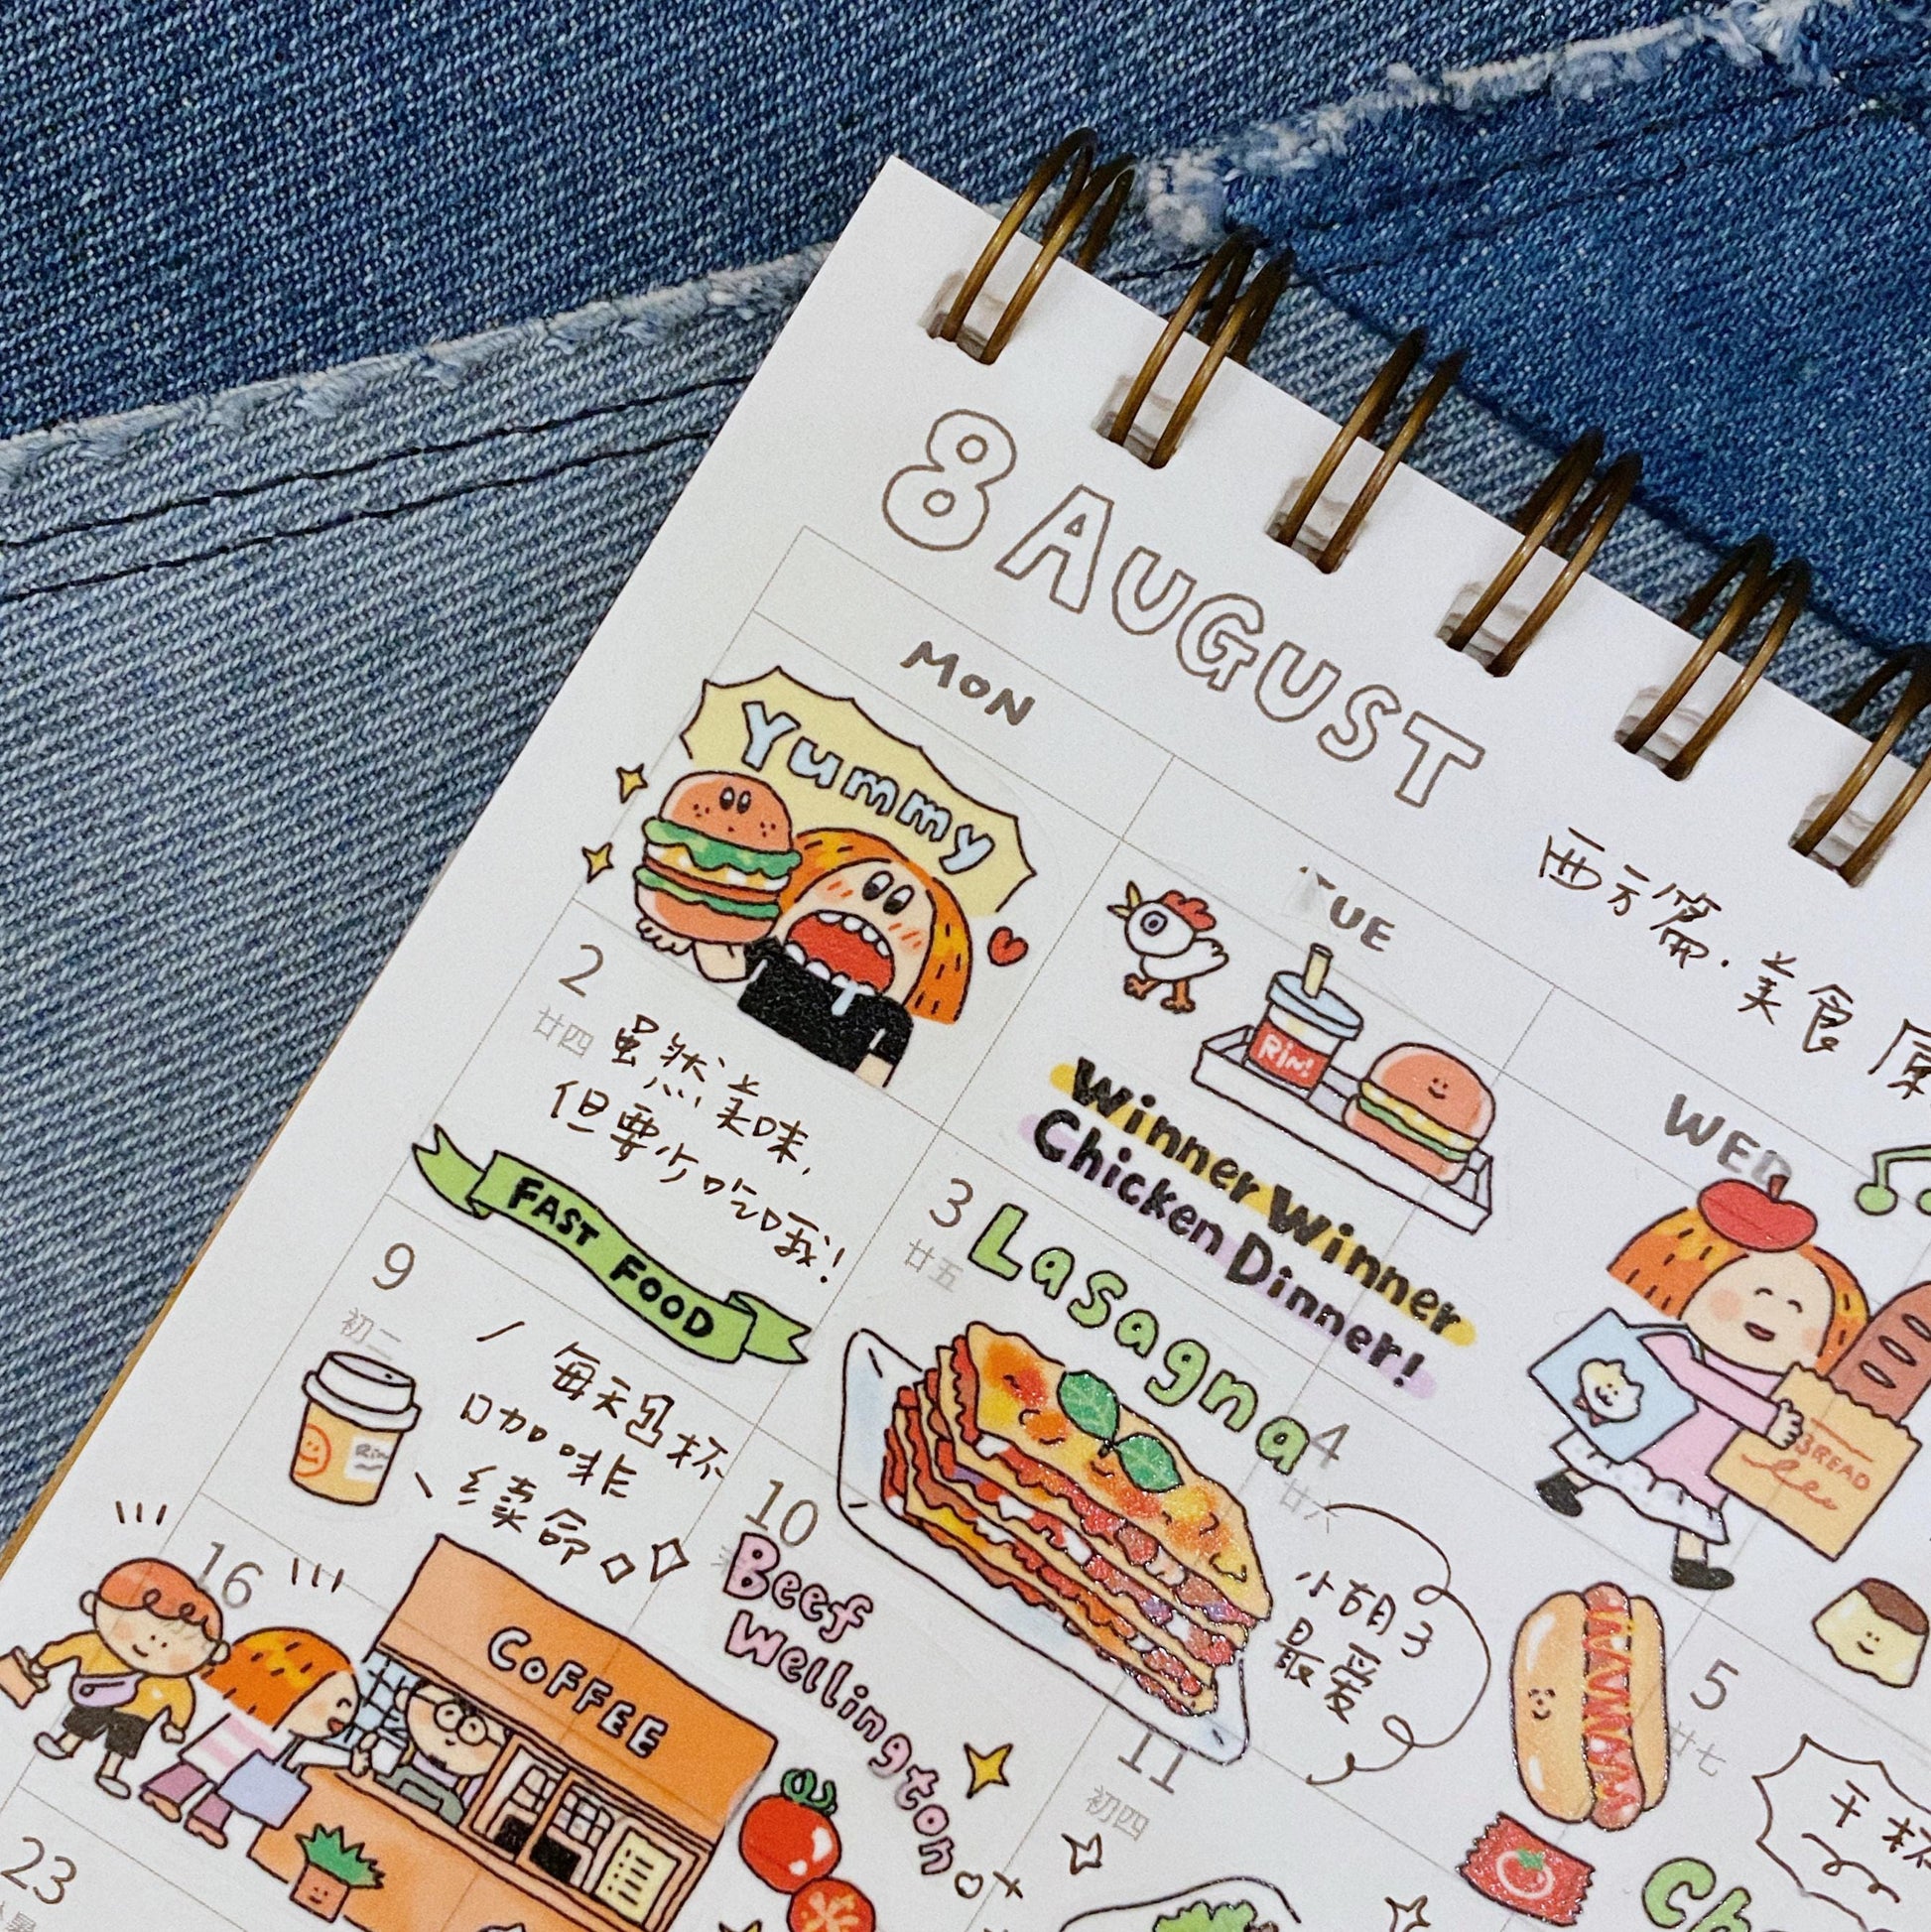 8 AUGUST
西方篇·美食
MON
TUE
WED
Yummy
Rin!
Winner Winner
Chicken Dinner!
2
廿四
虽然美味,
但要少吃哦!
FAST FOOD
3
廿五
Lasagna
4
廿六
小胡子
最爱
BREAD
5
廿七
干杯
9
初二
每天包杯
咖啡
续命
Rin
10
Beef
Wellington
11
初四
16
COFFEE
23
Ch